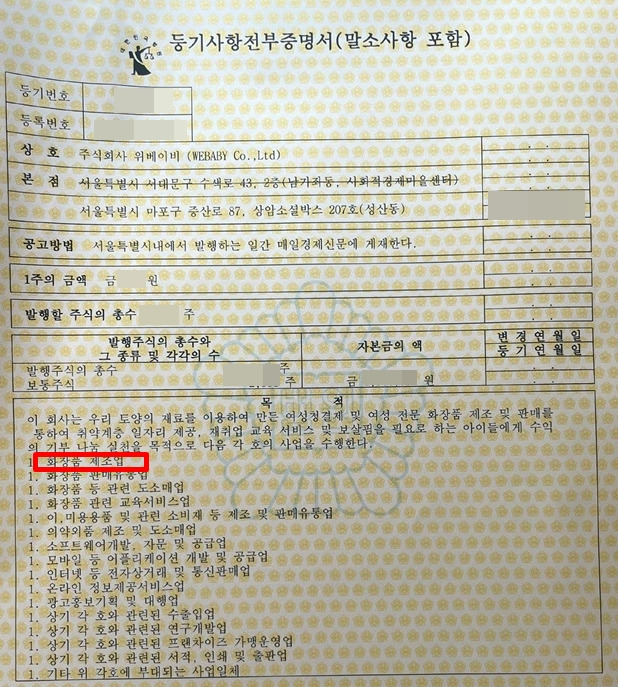 등기사항전부증명서(말소사항 포함)
등기번호
등록번호
상 호 주식회사 위베이비 (WEBABY Co.,Ltd)
본 점 서울특별시 서대문구 수색로 43, 2층(남가좌동, 사회적경제마을센터)
서울특별시 마포구 중산로 87, 상암소설박스 207호(성산동)
공고방법 서울특별시내에서 발행하는 일간 매일경제신문에 게재한다.
1주의 금액 금 원
발행할 주식의 총수 주
발행주식의 총수와 그 종류 및 각각의 수
자본금의 액
변 경 연 월 일
등 기 연 월 일
발행주식의 총수 주
보통주식 주 금 원
목 적
이 회사는 우리 토양의 재료를 이용하여 만든 여성청결제 및 여성 전문 화장품 제조 및 판매를
통하여 취약계층 일자리 제공, 재취업 교육 서비스 및 보살핌을 필요로 하는 아이들에게 수익
의 기부 나눔 실천을 목적으로 다음 각 호의 사업을 수행한다.
1. 화장품 제조업
1. 화장품 판매유통업
1. 화장품 등 관련 도소매업
1. 화장품 관련 교육서비스업
1. 이,미용용품 및 관련 소비재 등 제조 및 판매유통업
1. 의약외품 제조 및 도소매업
1. 소프트웨어개발, 자문 및 공급업
1. 모바일 등 어플리케이션 개발 및 공급업
1. 인터넷 등 전자상거래 및 통신판매업
1. 온라인 정보제공서비스업
1. 광고홍보기획 및 대행업
1. 상기 각 호와 관련된 수출입업
1. 상기 각 호와 관련된 연구개발업
1. 상기 각 호와 관련된 프랜차이즈 가맹운영업
1. 상기 각 호와 관련된 서적, 인쇄 및 출판업
1. 기타 위 각호에 부대되는 사업일체